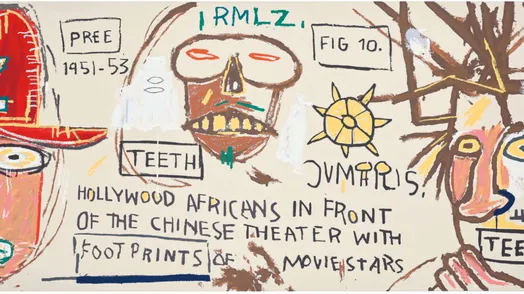 PREE
1951-53
RMLZ.
FIG 10.
TEETH
HOLLYWOOD AFRICANS IN FRONT
OF THE CHINESE THEATER WITH
FOOTPRINTS OF MOVIE STARS
TEE